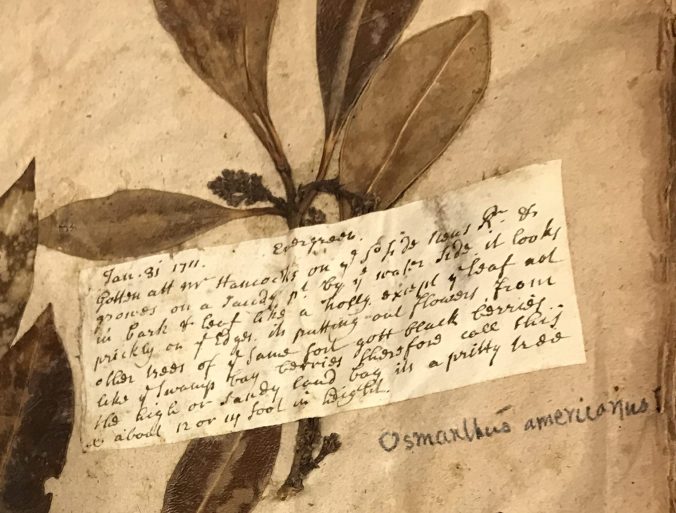 Jan. 31 1711. Evergreen.
Gotten att Mr Hancocks on ye So side Neus Rr. &
growes on a Sandy pt. by ye water side it looks
in bark & leaf like a holly except ye leaf not
prickly on ye Edges. its putting out flowers from
other trees of ye same sort gott black berries.
like ye swamp bay berries therefore call this
the high or sandy land bay its a pritty tree
& about 12 or 14 foot in height.
Osmanthus americanus